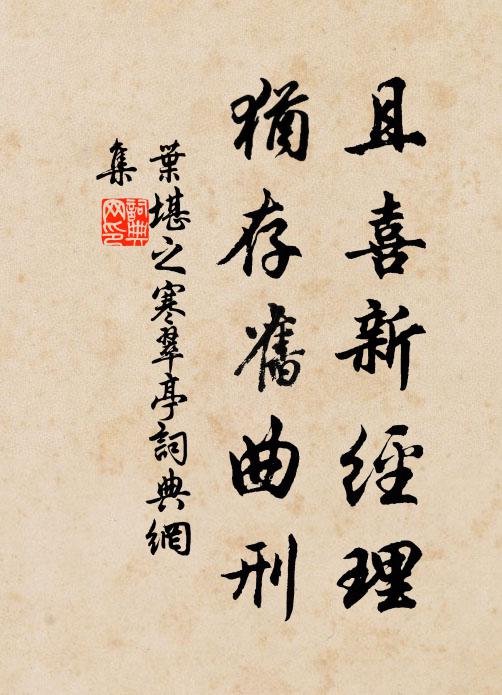 且喜新經理
猶存舊曲刑
葉堪之寒翠亭詞典網
集
詞典
网印